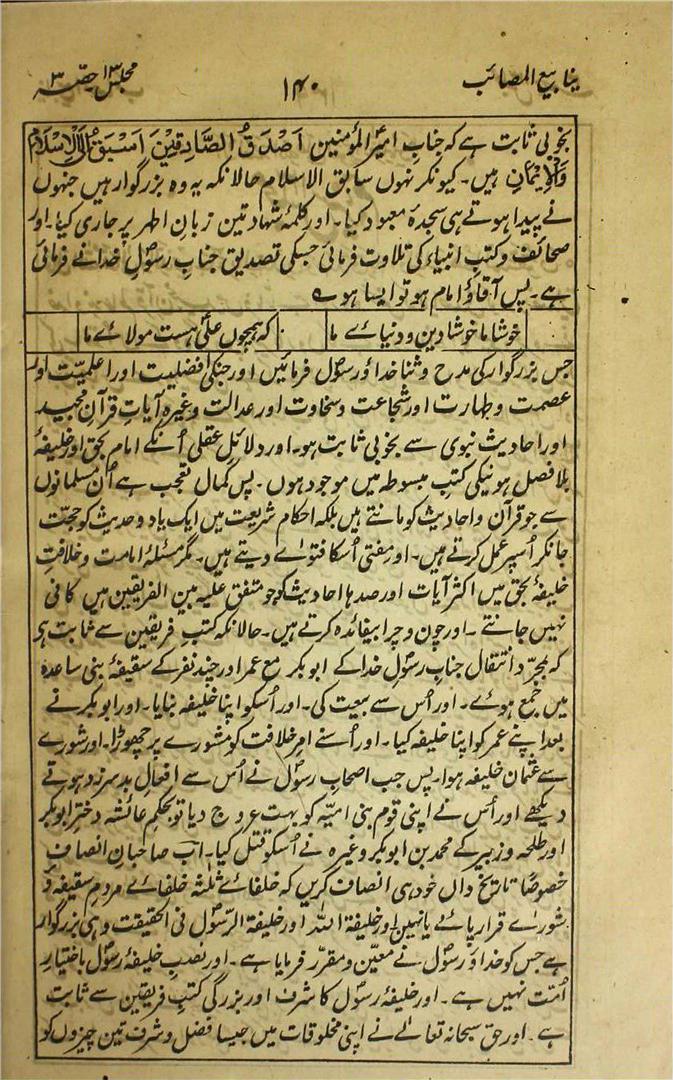 ینابیع المصائب
۱۴۰
مجلس ۱۳ حصہ ۳
بخوبی ثابت ہے کہ جناب امیرالمؤمنین اَصْدَقُ الصَّادِقِیْنَ اَسْبَقُ اِلَی الْاِسْلَامْ
وَالْاِیْمَانِ ہیں۔ کیونکر نہوں سابق الاسلام حالانکہ یہ وہ بزرگوار ہیں جنہوں
نے پیدا ہوتے ہی سجدۂ معبود کیا۔ اور کلمۂ شہادتین زبانِ اطہر پر جاری کیا۔ اور
صحائف و کتبِ انبیاء کی تلاوت فرمائی جسکی تصدیق جناب رسولِ خدا نے فرمائی
ہے۔ پس آقا و امام ہو تو ایسا ہو ے
خوشا ما خوشا دین و دنیائے ما
کہ ہمچوں علیؑ ہست مولائے ما
جس بزرگوار کی مدح و ثنا خدا و رسول فرمائیں اور جنکی افضلیت اور اعلمیّت اور
عصمت و طہارت اور شجاعت و سخاوت اور عدالت وغیرہ آیاتِ قرآن مجید
اور احادیث نبوی سے بخوبی ثابت ہو۔ اور دلائلِ عقلی اُنکے امام بحق اور خلیفۂ
بلافصل ہونیکی کتبِ مبسوطہ میں موجود ہوں۔ پس کمال تعجب ہے اُن مسلمانوں
سے جو قرآن و احادیث کو مانتے ہیں بلکہ احکام شریعت میں ایک یا دو حدیث کو حجّت
جانکر اُسپر عمل کرتے ہیں۔ اور مفتی اُسکا فتوےٰ دیتے ہیں۔ مگر مسئلۂ امامت و خلافتِ
خلیفۂ بحق میں اکثر آیات اور صدہا احادیث کو جو متفق علیہ بین الفریقین ہیں کافی
نہیں جانتے۔ اور چون و چرا بیفائدہ کرتے ہیں۔ حالانکہ کتبِ فریقین سے ثابت ہو
کہ بمجرّد انتقال جناب رسولِ خدا کے ابوبکر مع عمر اور چند نفر کے سقیفۂ بنی ساعدہ
میں جمع ہوئے۔ اور اُس سے بیعت کی۔ اور اُسکو اپنا خلیفہ بنایا۔ اور ابوبکر نے
بعد اپنے عمر کو اپنا خلیفہ کیا۔ اور اُسنے امرِ خلافت کو مشورے پر چھوڑا۔ اور شورے
سے عثمان خلیفہ ہوا۔ پس جب اصحابِ رسول نے اُس سے افعالِ بد سرزد ہوتے
دیکھے اور اُس نے اپنی قوم بنی امیّہ کو بہت عروج دیا تو بحکم عائشہ دختر ابوبکر
اور طلحہ و زبیر کے محمد بن ابوبکر وغیرہ نے اُسکو قتل کیا۔ اب صاحبانِ انصاف
خصوصًا تاریخ داں خود ہی انصاف کریں کہ خلفائے ثلثہ خلفائے مردمِ سقیفہ و
شورےٰ قرار پائے یا نہیں اور خلیفۃ اللہ اور خلیفۃ الرّسول فی الحقیقت وہی بزرگوار
ہے جس کو خدا و رسول نے معیّن و مقرّر فرمایا ہے۔ اور نصبِ خلیفۂ رسول باختیارِ
اُمّت نہیں ہے۔ اور خلیفۂ رسول کا شرف اور بزرگی کتبِ فریقین سے ثابت
ہے۔ اور حق سبحانہ تعالےٰ نے اپنی مخلوقات میں جیسا فضل و شرف تین چیزوں کو